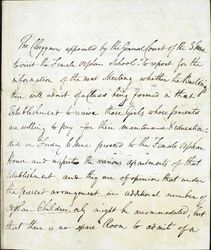 The Clergymen appointed by the General Court of the
to visit the Female Orphan School to report for the
information of the next Meeting, whether the Building
there will admit of a Class being formed in that
Establishment to receive those Girls whose parents
are willing to pay for their maintenance & education -
did on Friday proceed to the Female Orphan
House and inspected the various apartments of that
Establishment and they are of opinion that under
the present arrangement an additional number of
Orphan Children only might be accommodated, but
that there is no spare Room to admit of a